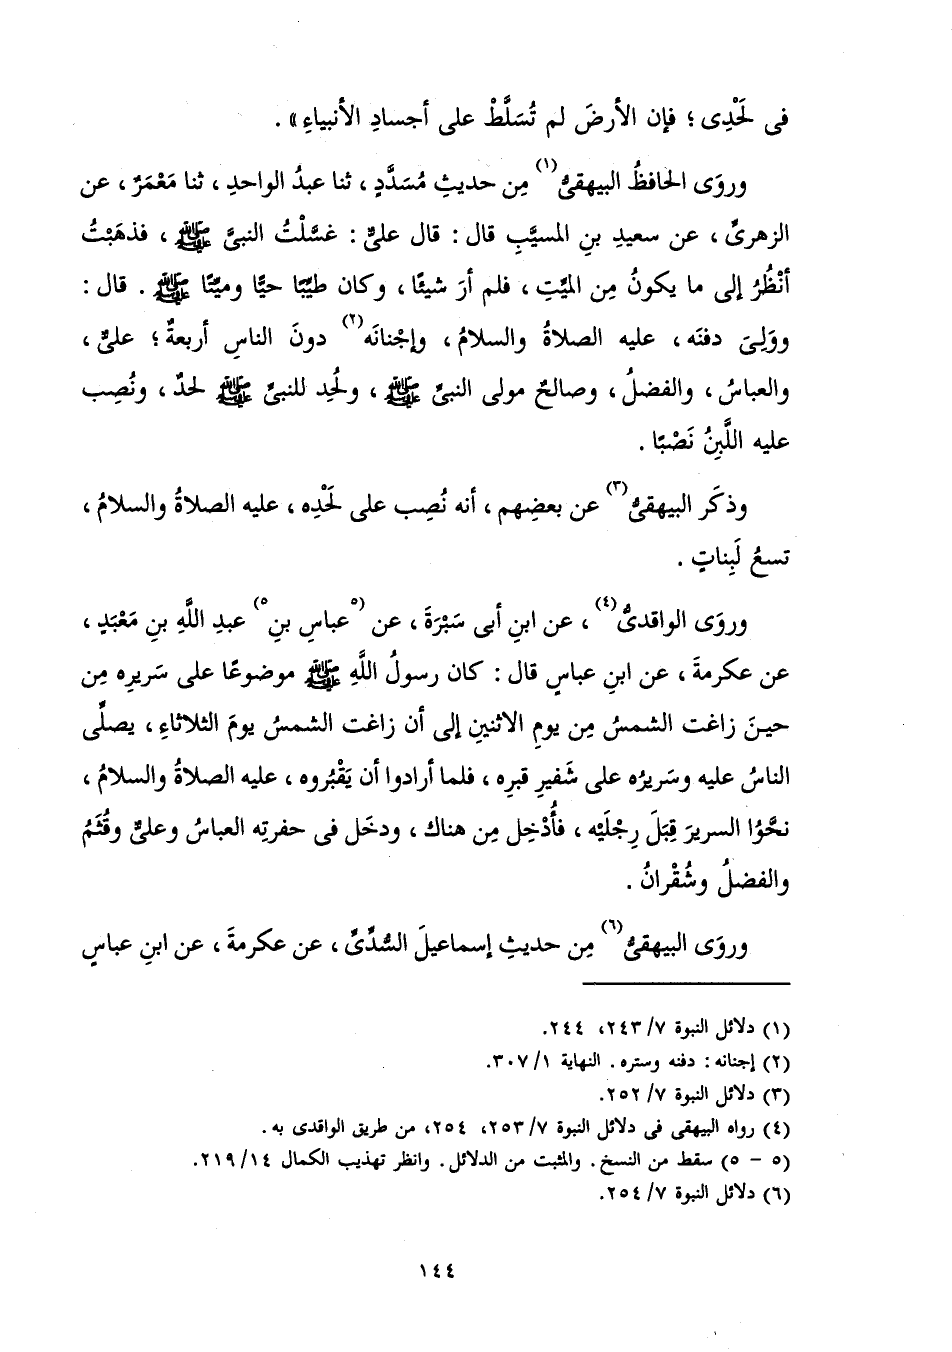 فى لَحْدِى ؛ فإن الأرضَ لم تُسَلَّطْ على أجسادِ الأنبياءِ» .
وروَى الحافظُ البيهقىُّ(١) مِن حديثِ مُسَدَّدٍ ، ثنا عبدُ الواحدِ ، ثنا مَعْمَرٌ ، عن
الزهرىِّ ، عن سعيدِ بنِ المسيَّبِ قال : قال علىٌّ : غسَّلْتُ النبىَّ ﷺ ، فذهَبْتُ
أنْظُرُ إلى ما يكونُ مِن الميِّتِ ، فلم أرَ شيئًا ، وكان طيِّبًا حيًّا وميِّتًا ﷺ . قال :
ووَلِىَ دفنَه ، عليه الصلاةُ والسلامُ ، وإجْنانَه(٢) دونَ الناسِ أربعةٌ ؛ علىٌّ ،
والعباسُ ، والفضلُ ، وصالحٌ مولى النبىِّ ﷺ ، ولُحِد للنبىِّ ﷺ لحدٌ ، ونُصِب
عليه اللَّبِنُ نَصْبًا .
وذكَر البيهقىُّ(٣) عن بعضِهم ، أنه نُصِب على لَحْدِه ، عليه الصلاةُ والسلامُ ،
تسعُ لَبِناتٍ .
وروَى الواقدىُّ(٤) ، عن ابنِ أبى سَبْرَةَ ، عن (٥عباسِ بنِ٥) عبدِ اللَّهِ بنِ مَعْبَدٍ ،
عن عكرمةَ ، عن ابنِ عباسٍ قال : كان رسولُ اللَّهِ ﷺ موضوعًا على سَريرِه مِن
حينَ زاغت الشمسُ مِن يومِ الاثنينِ إلى أن زاغت الشمسُ يومَ الثلاثاءِ ، يصلِّى
الناسُ عليه وسَريرُه على شَفيرِ قبرِه ، فلما أرادوا أن يَقْبُروه ، عليه الصلاةُ والسلامُ ،
نحَّوُا السريرَ قِبَلَ رِجْلَيْه ، فأُدْخِل مِن هناك ، ودخَل فى حفرتِه العباسُ وعلىٌّ وقُثَمُ
والفضلُ وشُقْرانُ .
وروَى البيهقىُّ(٦) مِن حديثِ إسماعيلَ السُّدِّىِّ ، عن عكرمةَ ، عن ابنِ عباسٍ
(١) دلائل النبوة ٧/ ٢٤٣، ٢٤٤.
(٢) إجنانه : دفنه وستره . النهاية ١/ ٣٠٧.
(٣) دلائل النبوة ٧/ ٢٥٢.
(٤) رواه البيهقى فى دلائل النبوة ٧/ ٢٥٣، ٢٥٤، من طريق الواقدى به .
(٥ - ٥) سقط من النسخ . والمثبت من الدلائل . وانظر تهذيب الكمال ١٤/ ٢١٩.
(٦) دلائل النبوة ٧/ ٢٥٤.
١٤٤